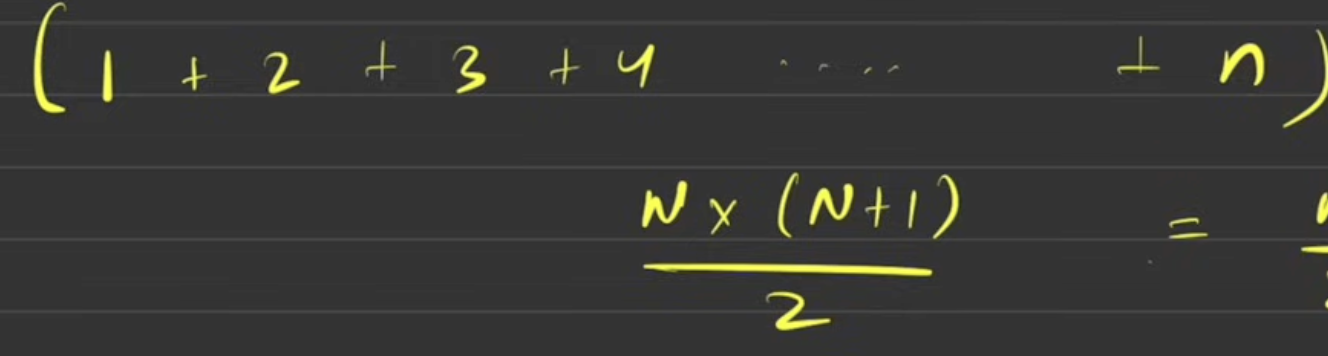 (1 + 2 + 3 + 4 ..... + n)
N × (N+1)
2
=